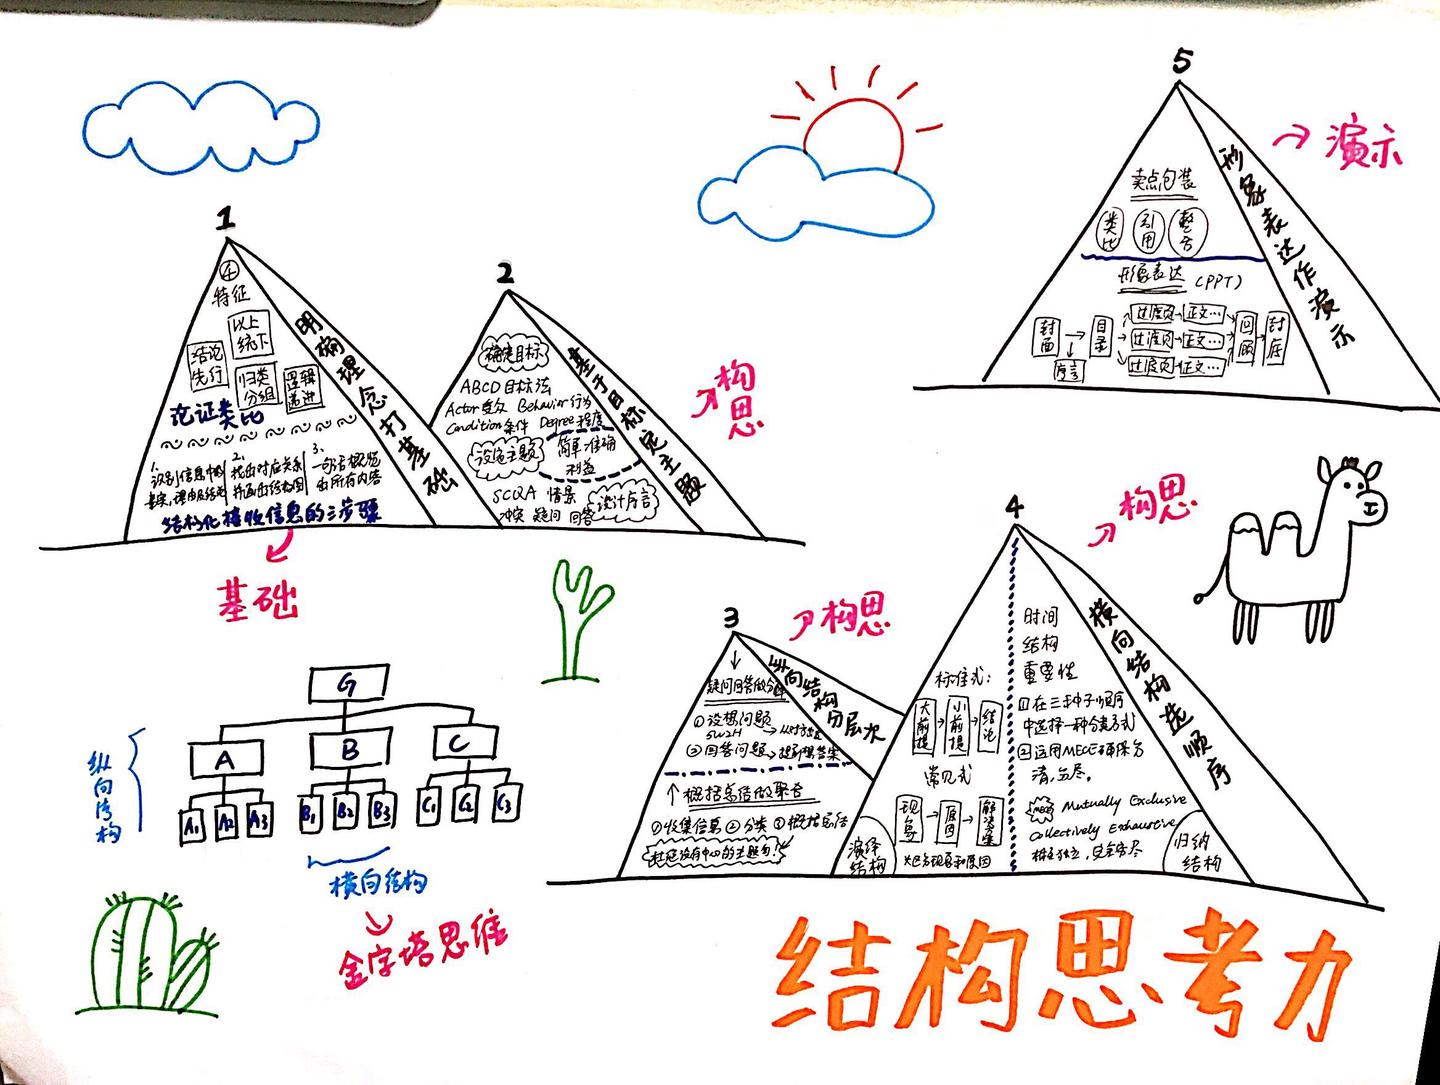 1
④
特征
结论
先行
以上
统下
归类
分组
逻辑
递进
论证类比
1.
识别信息中的
事实,理由及结论
2.
找出对应关系
并画出结构图
3.
一句话概览
出所有内容
结构化接收信息的三步骤
明确理念打基础
基础
2
确定目标
ABCD目标法
Actor受众 Behavior行为
Condition条件 Degree程度
设定主题
简单准确
利益
SCQA 情景
冲突 疑问 回答
设计序言
基于目标定主题
构思
5
卖点包装
类比
引用
整合
形象表达 (PPT)
封面
序言
目录
过渡页
正文…
过渡页
正文…
过渡页
正文…
回顾
封底
形象表达作演示
演示
3
疑问回答做分解
①设想问题
5W2H
②回答问题
概括总结做聚合
①收集信息 ②分类 ③概括总结
杜绝没有中心的主题句!
纵向结构分层次
构思
4
标准式:
大前提
小前提
结论
常见式
现象
原因
解决方案
演绎
结构
时间
结构
重要性
①在三种子顺序
中选择一种分类方式
②运用MECE确保分
清,分尽。
MECE
Mutually Exclusive
Collectively Exhaustive
相互独立,完全穷尽
归纳
结构
横向结构选顺序
构思
G
A
B
C
A1
A2
A3
B1
B2
B3
C1
C2
C3
纵向结构
横向结构
金字塔思维
结构思考力